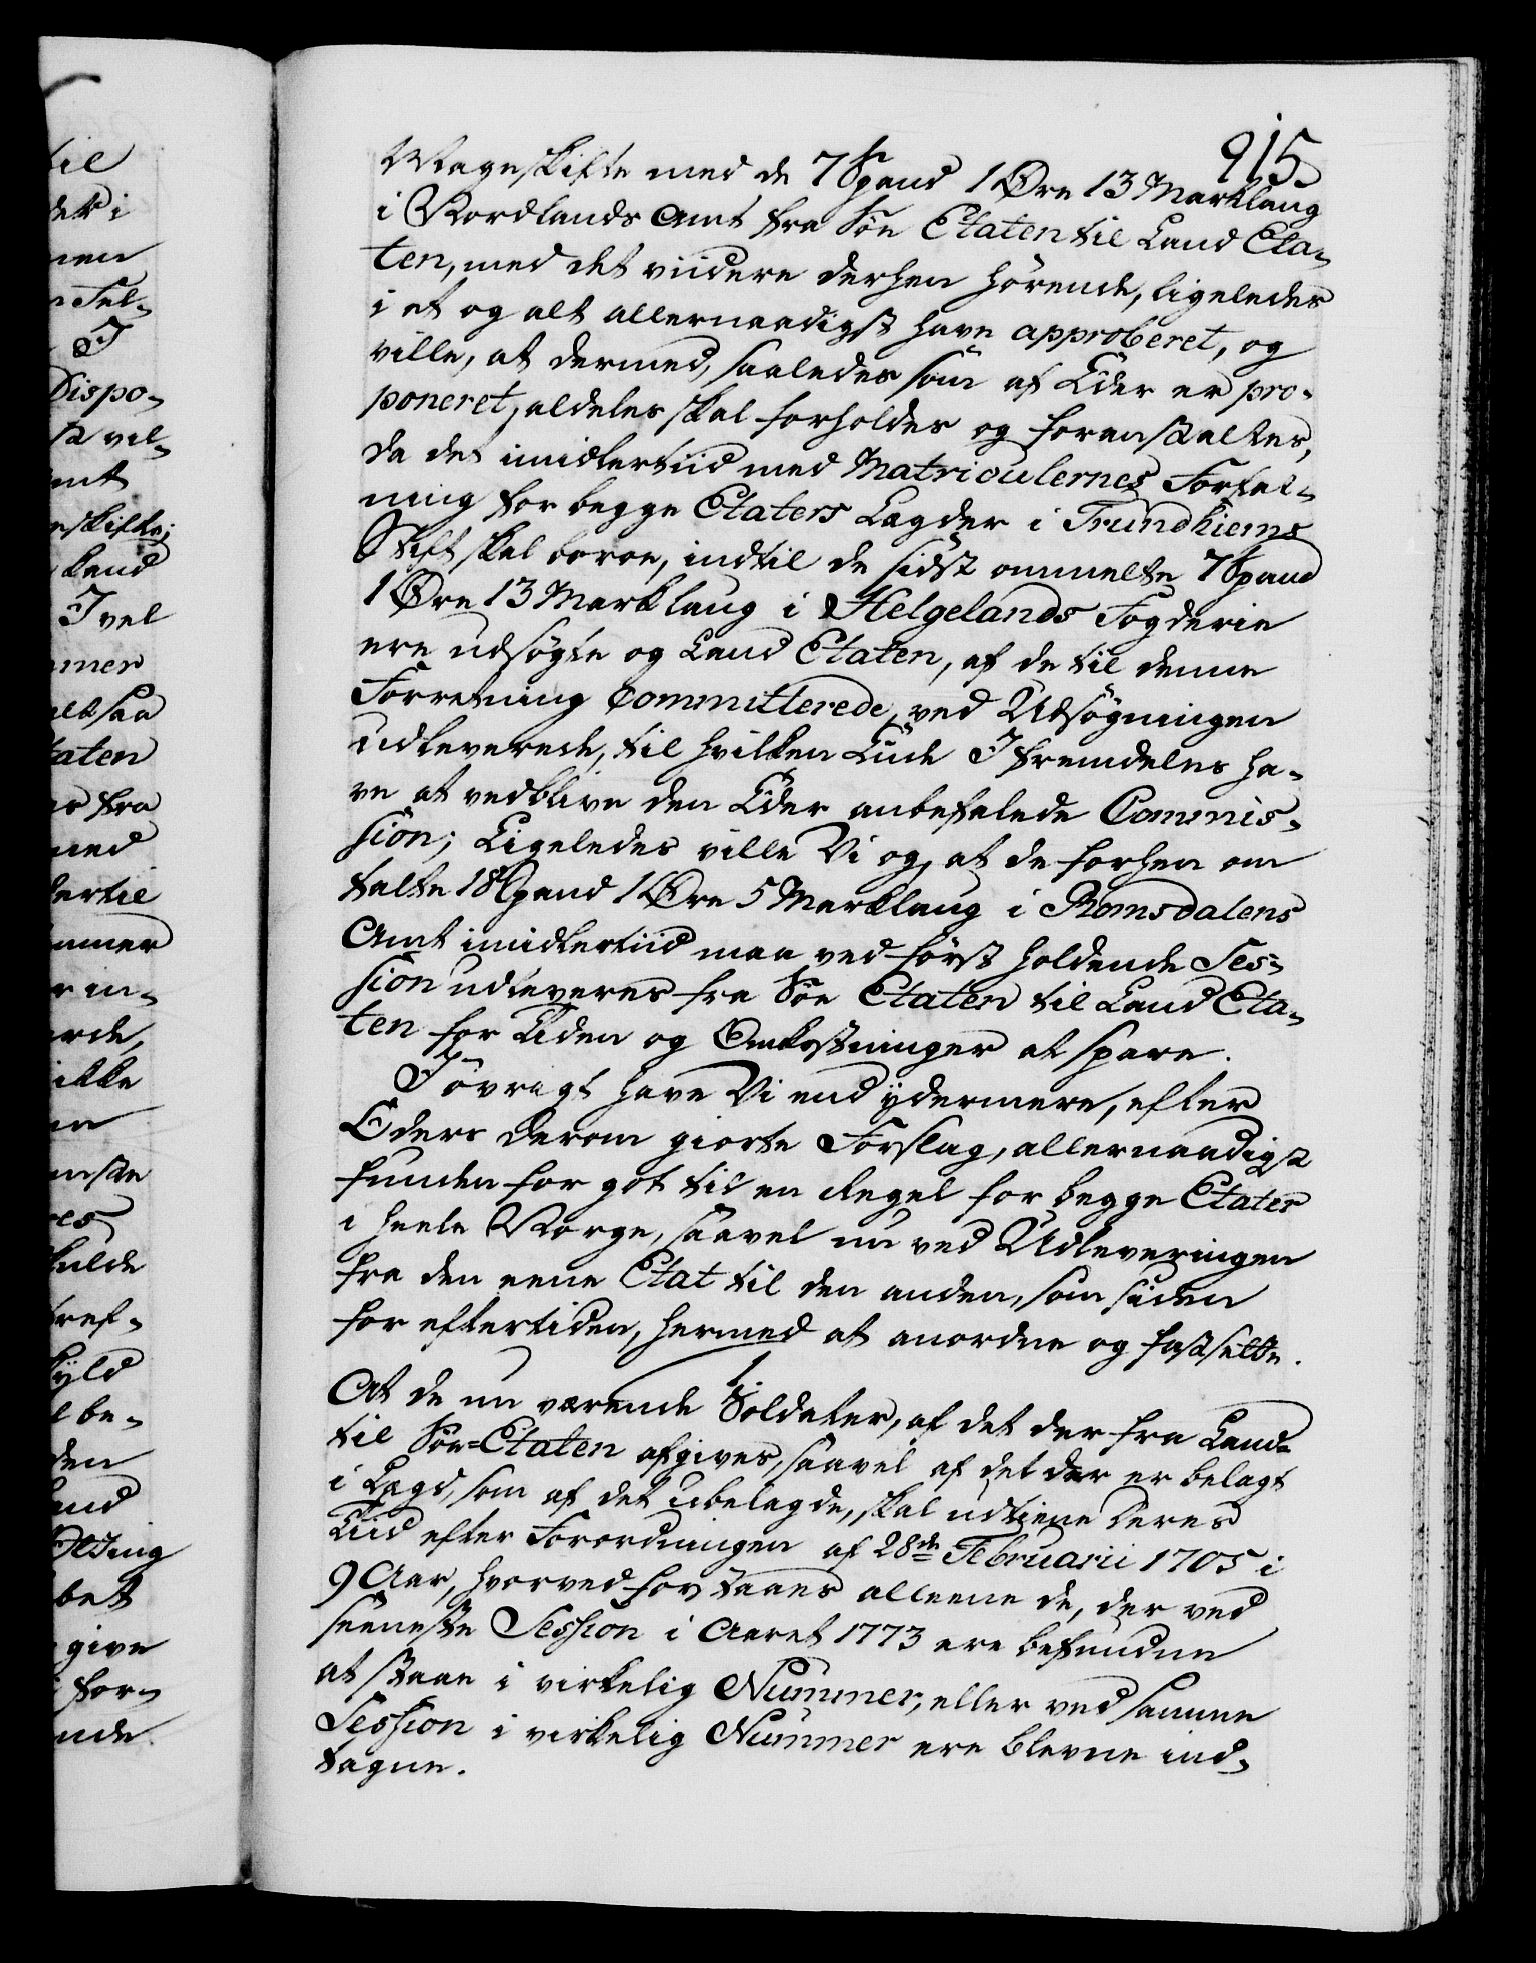 915.
Mageskifte med de 7 Spand 1 Øre 13 Marklaug
i Nordlands Amt fra Søe Etaten til Land Eta-
ten, med det viidere derhen hörende, ligeledes
i et og alt allernaadigst have approberet, og
ville, at dermed, saaledes som af Eder er pro-
poneret, aldeles skal forholdes og foranstaltes,
da det imidlertiid med Matriculernes Forfat-
ning for begge Etaters Lagder i Trundhiems
Stift skal beroe, indtil de sidst ommelte 7 Spand
1 Øre 13 Marklaug i Helgelands Fogderie
ere udsøgte og Land Etaten, af de til denne
Forretning Committerede, ved Udsögningen
udleverede, til hvilken Ende I fremdeles ha-
ve at vedblive den Eder anbefalede Commis-
sion; Ligeledes ville Vi og, at de forhen om
talte 18 Spand 1 Øre 5 Marklaug i Romsdalens
Amt imidlertiid maa ved först holdende Ses-
sion udleveres fra Söe Etaten til Land Eta-
ten for Tiden og Omkostninger at spare.
I øvrigt have Vi end ÿdermere, efter
Eders derom giorte Forslag, allernaadigst
funden for got til en Regel for begge Etater
i heele Norge, saavel nu ved Udleveringen
fra den eene Etat til den anden, som siden
for eftertiden, hermed at anordne og fastsette.
1.
At de nu værende Soldater, af det der fra Land-
til Søe-Etaten afgives, saavel af det der er belagt
i Lægd, som af det ubelagde, skal udtiene deres
Tiid efter Forordningen af 28de Februarii 1705 i
9 Aar, hvorved forstaaes alleene de, der ved
seeneste Session i Aaret 1773 ere befundne
at staae i virkelig Nummer, eller ved samme
Session i virkelig Nummer ere blevne ind-
tagne.